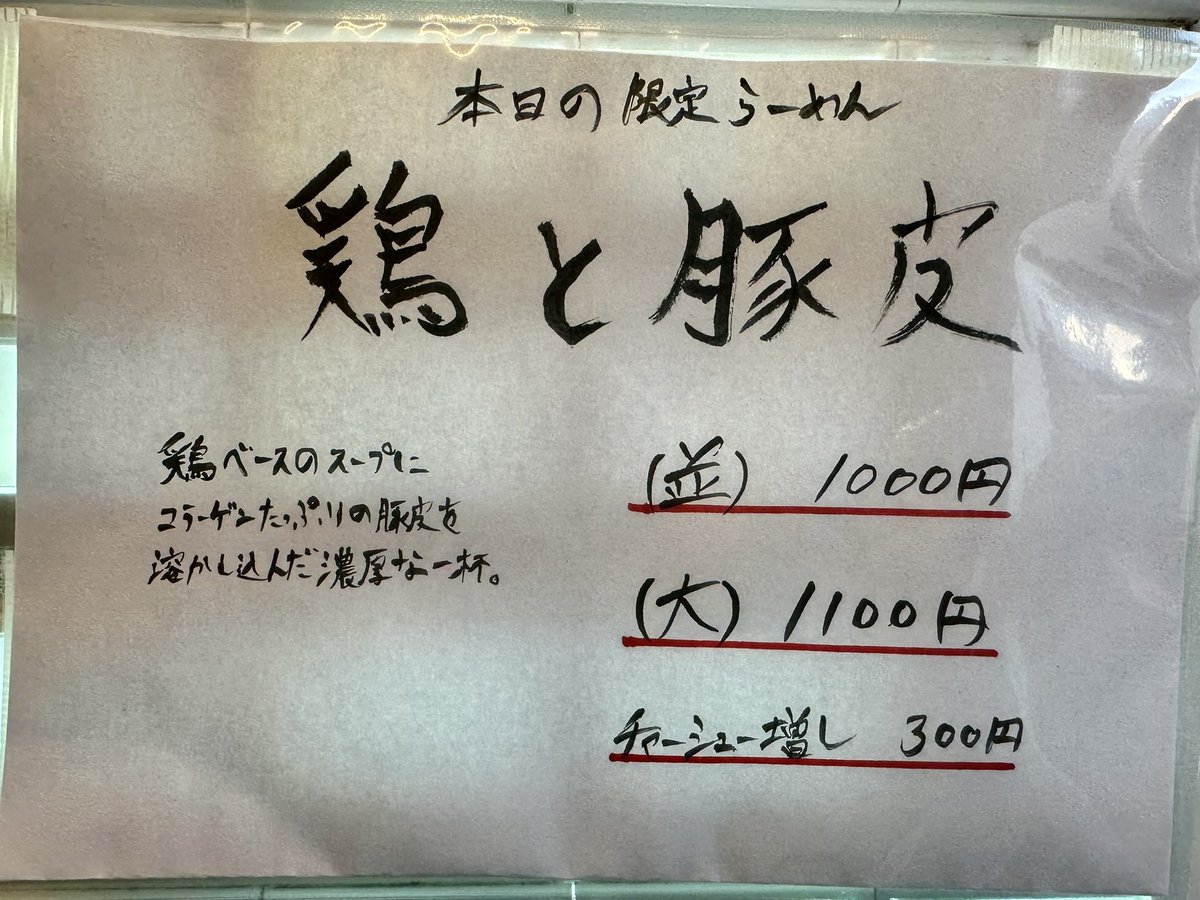 本日の限定らーめん
鶏と豚皮
鶏ベースのスープに
コラーゲンたっぷりの豚皮を
溶かし込んだ濃厚な一杯。
(並) 1000円
(大) 1100円
チャーシュー増し 300円